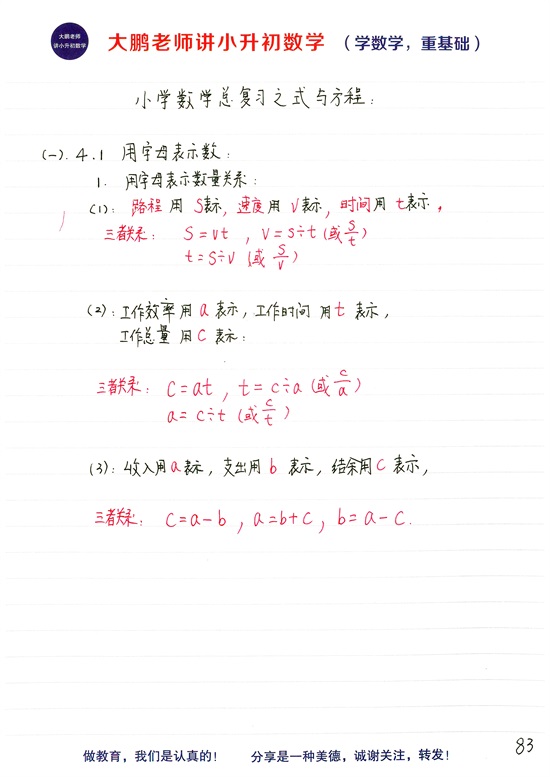 大鹏老师
讲小升初数学
大鹏老师讲小升初数学 (学数学，重基础)
小学数学总复习之式与方程:
(一). 4.1 用字母表示数:
1. 用字母表示数量关系:
(1): 路程用S表示, 速度用V表示, 时间用t表示,
三者关系: S=vt , V=S÷t (或 S/t)
t=S÷v (或 S/v)
(2): 工作效率用a表示, 工作时间用t表示,
工作总量用C表示:
三者关系: C=at , t=c÷a (或 c/a)
a=c÷t (或 c/t)
(3): 收入用a表示, 支出用b表示, 结余用C表示,
三者关系: C=a-b , a=b+c , b=a-c.
83
做教育，我们是认真的! 分享是一种美德，诚谢关注，转发!